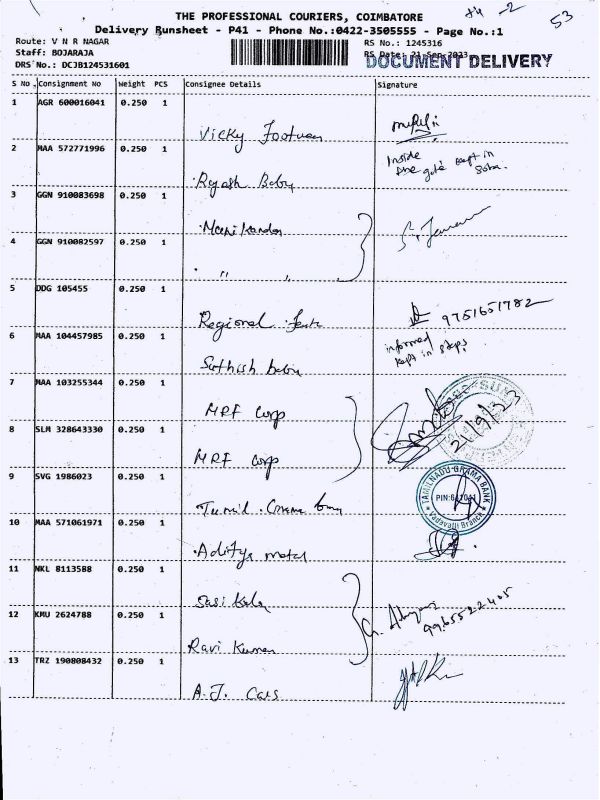 THE PROFESSIONAL COURIERS, COIMBATORE
Delivery Runsheet - P41 - Phone No.:0422-3505555 - Page No.:1
53
Route: V N R NAGAR
RS No.: 1245316
Staff: BOJARAJA
RS Date: 21-Sep-2023
DOCUMENT DELIVERY
DRS No.: DCJB124531601
S No Consignment No Weight PCS Consignee Details Signature
1 AGR 600016041 0.250 1
Vicky Footwear
2 MAA 572771996 0.250 1
Inside the gate kept in
Rajesh Babu
3 GGN 910083698 0.250 1
Manikandan
4 GGN 910082597 0.250 1
" "
5 DDG 105455 0.250 1
Regional 9751651782
6 MAA 104457985 0.250 1
informed kept in steps
Sathish babu
7 MAA 103255344 0.250 1
MRF Corp
8 SLM 328643330 0.250 1
21/9/23
MRF Corp
9 SVG 1986023 0.250 1
TAMILNADU GRAMA BANK
Vadavalli Branch
Tamil
10 MAA 571061971 0.250 1
Aditya metal
11 NKL 8113588 0.250 1
Sasi Kala
9965522405
12 KMU 2624788 0.250 1
Ravi Kumar
13 TRZ 190808432 0.250 1
A.J. Cars